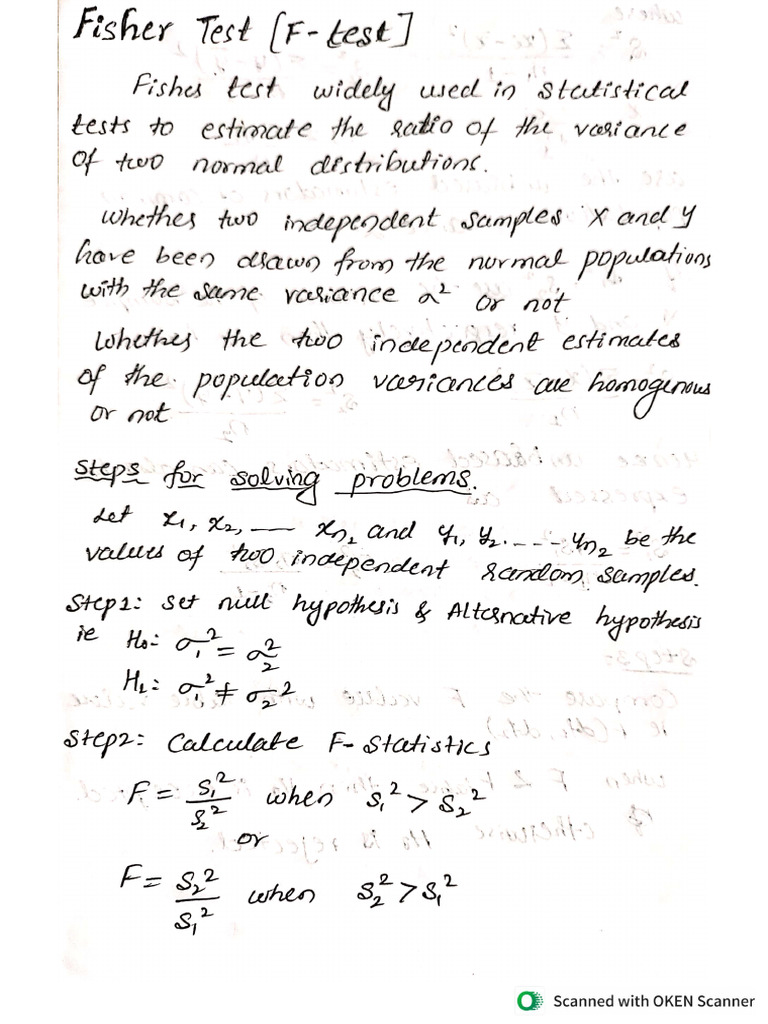 Fisher Test [F-test]
Fisher test widely used in statistical
tests to estimate the ratio of the variance
of two normal distributions.
Whether two independent samples x and y
have been drawn from the normal populations
with the same variance σ² or not
Whether the two independent estimates
of the population variances are homogenous
or not
Steps for solving problems.
Let x₁, x₂, — xn₁ and y₁, y₂. - - - yn₂ be the
values of two independent random samples.
Step1: Set null hypothesis & Alternative hypothesis
ie H₀: σ₁² = σ₂²
H₁: σ₁² ≠ σ₂²
Step2: Calculate F-Statistics
F = S₁²/S₂² when S₁² > S₂²
or
F = S₂²/S₁² when S₂² > S₁²
Scanned with OKEN Scanner